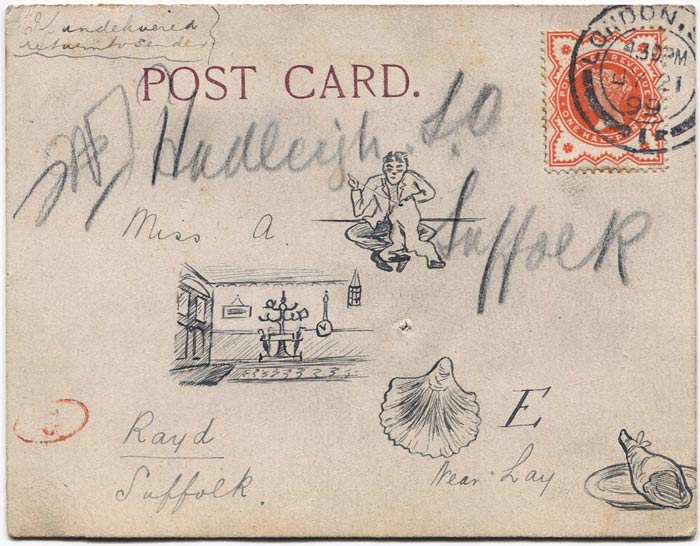 If undelivered
return to sender
POST CARD.
LONDON.
4.30PM
21
99
POSTAGE REVENUE
ONE HALFPENNY
Hadleigh S.O
Suffolk
Miss A
E
Rayd
Near Lay
Suffolk.